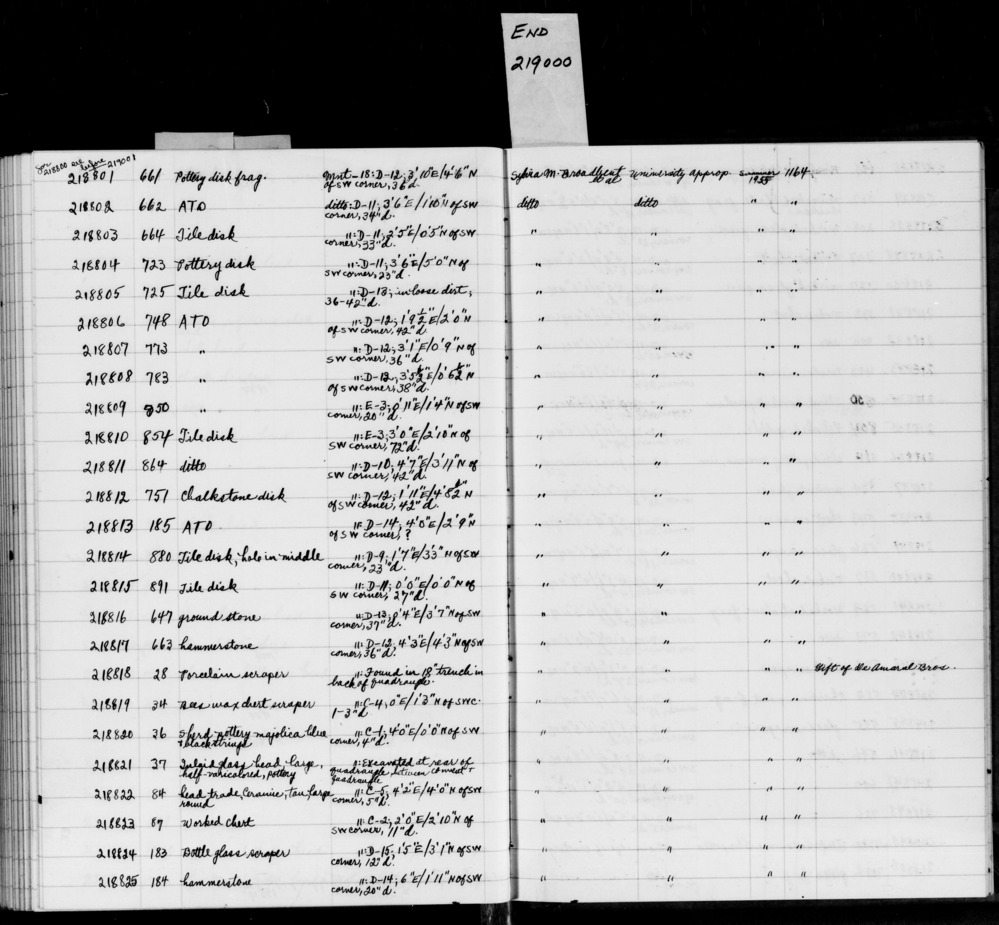 END
219000
For 218800 see before 219001
218801 661 Pottery disk frag. Mnt-18: D-12; 3'10"E/4'6"N Sylvia M. Broadbent et al University approp. summer 1955 1164
of SW corner, 36"d.
218802 662 ATD ditto: D-11; 3'6"E/1'10"N of SW ditto ditto " "
corner, 34"d.
218803 664 Tile disk ": D-11; 2'5"E/0'5"N of SW " " " "
corner, 33"d.
218804 723 Pottery disk ": D-11; 3'6"E/5'0"N of " " " "
SW corner, 23"d.
218805 725 Tile disk ": D-13; in loose dirt, " " " "
36-42"d.
218806 748 ATD ": D-12; 1'9½"E/2'0"N " " " "
of SW corner, 42"d.
218807 773 " ": D-12; 3'1"E/0'9"N of " " " "
SW corner, 36"d.
218808 783 " ": D-12, 3'5½"E/0'6½"N " " " "
of SW corner, 38"d.
218809 850 " ": E-3; 0'11"E/1'4"N of SW " " " "
corner, 20"d.
218810 854 Tile disk ": E-3; 3'0"E/2'10"N of " " " "
SW corner, 72"d.
218811 864 ditto ": D-10; 4'7"E/3'11"N of " " " "
SW corner, 42"d.
218812 751 Chalkstone disk ": D-12; 1'11"E/4'8½"N " " " "
of SW corner, 42"d.
218813 185 ATD ": D-14; 4'0"E/2'9"N " " " "
of SW corner, ?
218814 880 Tile disk, hole in middle ": D-9; 1'7"E/3'3"N of SW " " " "
corner, 23"d.
218815 891 Tile disk ": D-11; 0'0"E/0'0"N of " " " "
SW corner, 27"d.
218816 647 ground stone ": D-13; 0'4"E/3'7"N of SW " " " "
corner, 37"d.
218817 663 hammerstone ": D-12, 4'3"E/4'3"N of SW " " " "
corner, 36"d.
218818 28 Porcelain scraper ": Found in 18" trench in " " " " Gift of De Amaral Bros.
back of quadrangle.
218819 34 Bees wax chert scraper ": C-4, 0"E/1'3"N of SWC. " " " "
1-3"d
218820 36 Sherd pottery majolica blue ": C-1; 4'0"E/0'0"N of SW " " " "
+ black strings corner, 4"d.
218821 37 glass bead, large, ": Excavated at rear of " " " "
half-varicolored, pottery quadrangle, between convent + quadrangle
218822 84 bead trade, Ceramic, tan, large ": C-5, 4'2"E/4'0"N of SW " " " "
round corner, 5"d.
218823 87 Worked chert ": C-2; 2'0"E/2'10"N of " " " "
SW corner, 11"d.
218824 183 Bottle glass scraper ": D-15, 1'5"E/3'1"N of SW " " " "
corner, 12"d.
218825 184 hammerstone ": D-14; 6"E/1'11"N of SW " " " "
corner, 20"d.